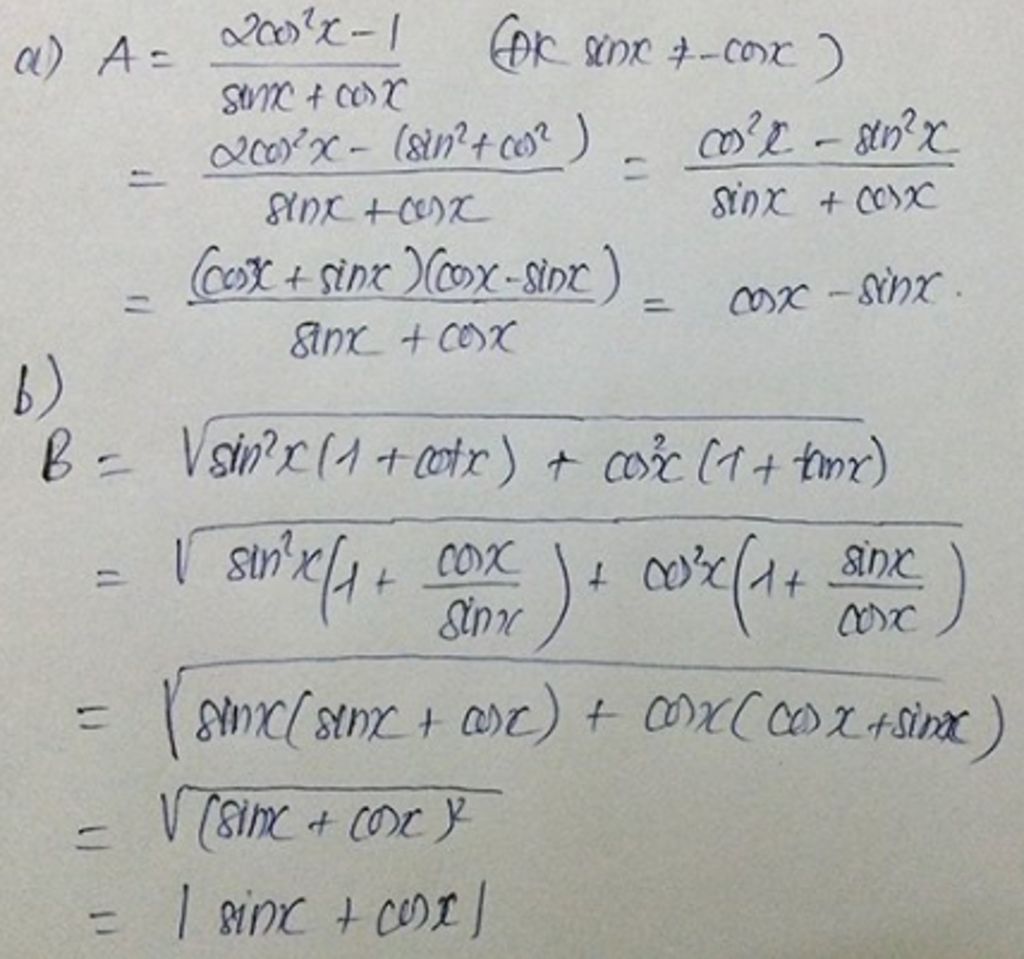 a) A = \frac{2cos²x - 1}{sinx + cosx} (ĐK sinx ≠ -cosx)
= \frac{2cos²x - (sin² + cos²)}{sinx + cosx} = \frac{cos²x - sin²x}{sinx + cosx}
= \frac{(cosx + sinx)(cosx - sinx)}{sinx + cosx} = cosx - sinx.
b)
B = √(sin²x(1 + cotx) + cos²x(1 + tanx))
= √(sin²x(1 + \frac{cosx}{sinx}) + cos²x(1 + \frac{sinx}{cosx}))
= √(sinx(sinx + cosx) + cosx(cosx + sinx))
= √((sinx + cosx)²)
= |sinx + cosx|